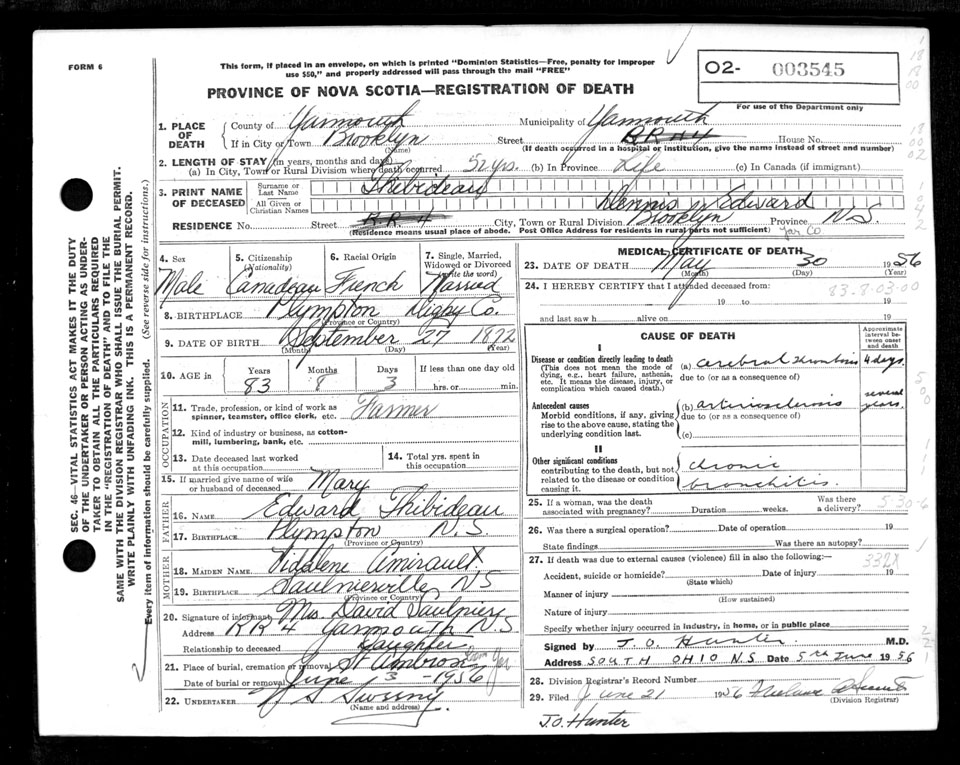 FORM 6
This form, if placed in an envelope, on which is printed "Dominion Statistics—Free, penalty for improper
use $50," and properly addressed will pass through the mail "FREE"
02- 003545
PROVINCE OF NOVA SCOTIA—REGISTRATION OF DEATH
For use of the Department only
1. PLACE OF DEATH
County of Yarmouth Municipality of Yarmouth
If in City or Town Brooklyn Street R R #4 House No.
(Name) (If death occurred in a hospital or institution, give the name instead of street and number)
2. LENGTH OF STAY (in years, months and days)
(a) In City, Town or Rural Division where death occurred 52 yrs. (b) In Province Life (c) In Canada (if immigrant)
3. PRINT NAME OF DECEASED
Surname or Last Name Thibideau
All Given or Christian Names Dennis Edward
RESIDENCE No. R.R. 4 Street City, Town or Rural Division Brooklyn Province N.S.
(Residence means usual place of abode. Post Office Address for residents in rural parts not sufficient) Yar Co
4. Sex Male
5. Citizenship (Nationality) Canadian
6. Racial Origin French
7. Single, Married, Widowed or Divorced (write the word) Married
8. BIRTHPLACE Plympton Digby Co.
(Province or Country)
9. DATE OF BIRTH September 27 1872
(Month) (Day) (Year)
10. AGE in Years Months Days If less than one day old
83 8 3 hrs. or min.
OCCUPATION
11. Trade, profession, or kind of work as spinner, teamster, office clerk, etc. Farmer
12. Kind of industry or business, as cotton-mill, lumbering, bank, etc.
13. Date deceased last worked at this occupation
14. Total yrs. spent in this occupation
15. If married give name of wife or husband of deceased Mary
FATHER
16. NAME Edward Thibideau
17. BIRTHPLACE Plympton N.S.
(Province or Country)
MOTHER
18. MAIDEN NAME Amirault
19. BIRTHPLACE Saulnierville NS
(Province or Country)
20. Signature of informant Mrs David Saulnier
Address RR 4 Yarmouth N.S
Relationship to deceased Daughter
21. Place of burial, cremation or removal St Ambrose
Date of burial or removal June 1 - 1956
22. UNDERTAKER Sweeny
(Name and address)
MEDICAL CERTIFICATE OF DEATH
23. DATE OF DEATH May 30 1956
(Month) (Day) (Year)
24. I HEREBY CERTIFY that I attended deceased from: 83-8-03-00
19 to 19
and last saw h alive on 19
CAUSE OF DEATH
Approximate interval between onset and death
I
Disease or condition directly leading to death
(This does not mean the mode of dying, e.g., heart failure, asthenia, etc. It means the disease, injury, or complication which caused death.)
(a) cerebral thrombosis 4 days.
due to (or as a consequence of)
Antecedent causes
Morbid conditions, if any, giving rise to the above cause, stating the underlying condition last.
(b) arteriosclerosis several years.
due to (or as a consequence of)
(c)
II
Other significant conditions
contributing to the death, but not related to the disease or condition causing it.
chronic
bronchitis.
25. If a woman, was the death associated with pregnancy? Duration weeks. Was there a delivery? 5-30-6
26. Was there a surgical operation? Date of operation 19
State findings Was there an autopsy?
27. If death was due to external causes (violence) fill in also the following:— 332X
Accident, suicide or homicide? Date of injury 19
(State which)
Manner of injury
(How sustained)
Nature of injury
Specify whether injury occurred in industry, in home, or in public place
Signed by J. O. Hunter M.D.
Address SOUTH OHIO N.S. Date 5th June 1956
28. Division Registrar's Record Number
29. Filed June 21 1956
(Division Registrar)
J.O. Hunter
SEC. 46—VITAL STATISTICS ACT MAKES IT THE DUTY
OF THE UNDERTAKER OR PERSON ACTING AS UNDER-
TAKER TO OBTAIN ALL THE PARTICULARS REQUIRED
IN THE "REGISTRATION OF DEATH" AND TO FILE THE
SAME WITH THE DIVISION REGISTRAR WHO SHALL ISSUE THE BURIAL PERMIT.
WRITE PLAINLY WITH UNFADING INK. THIS IS A PERMANENT RECORD.
Every item of information should be carefully supplied. (See reverse side for instructions.)